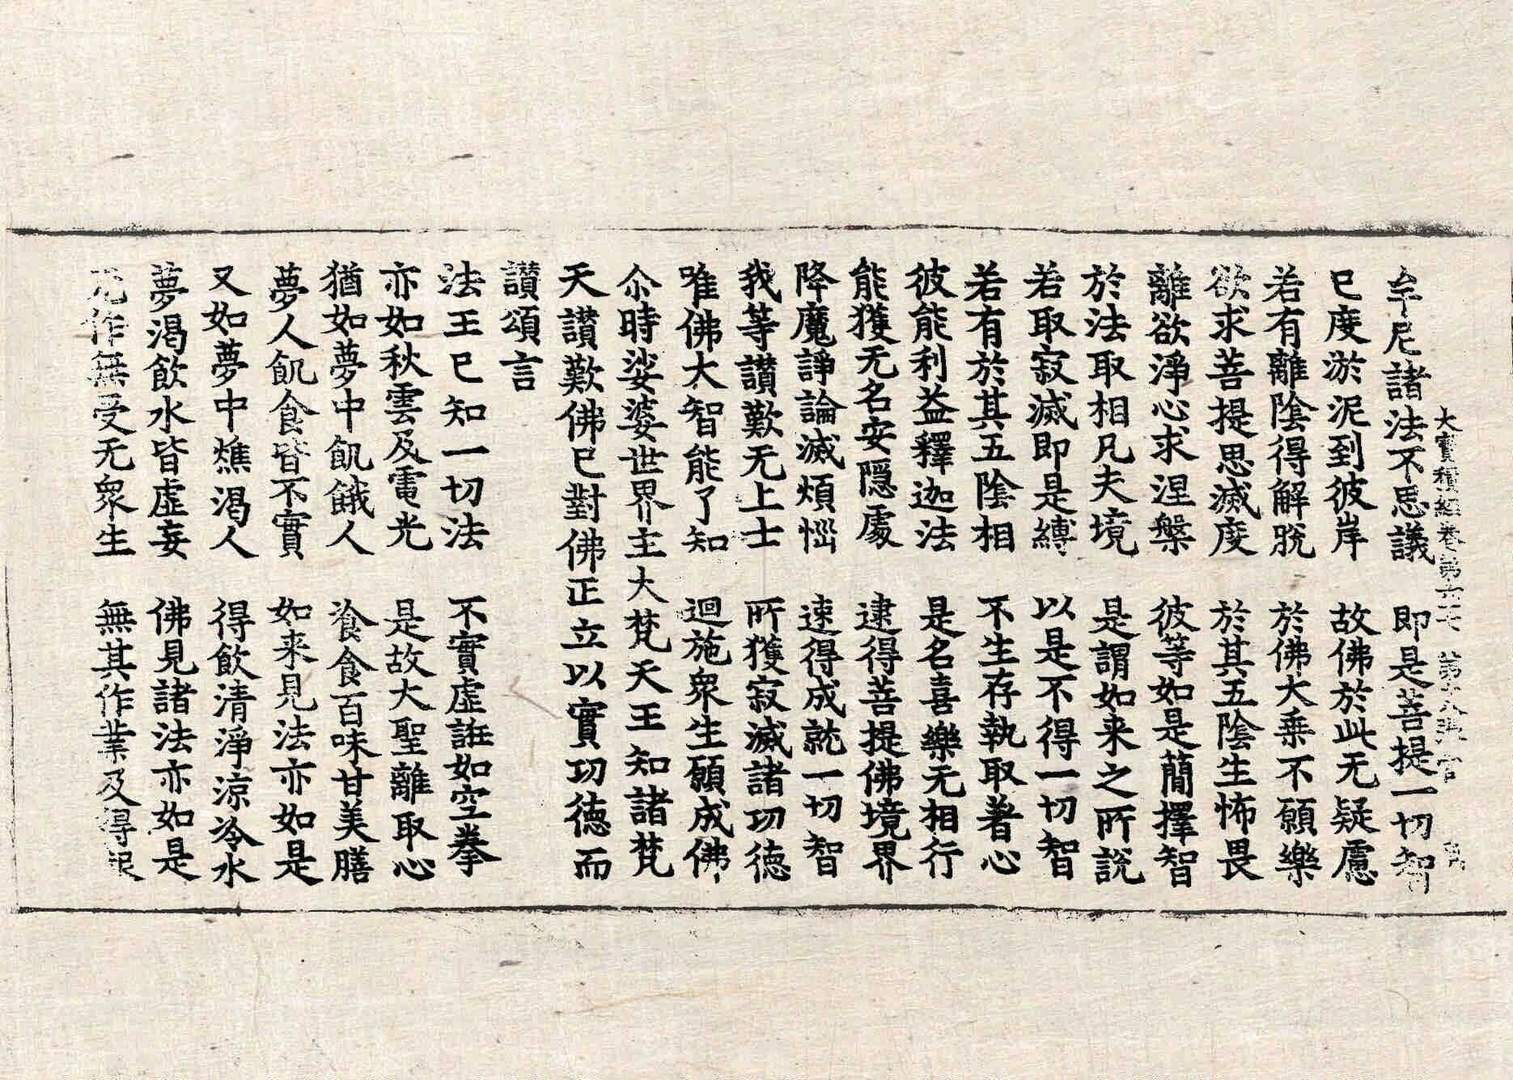 大寶積經卷第六十七 第十八張 官
牟尼諸法不思議 即是菩提一切智
已度淤泥到彼岸 故佛於此无疑慮
若有離陰得解脫 於佛大乘不願樂
欲求菩提思滅度 於其五陰生怖畏
離欲淨心求涅槃 彼等如是簡擇智
於法取相凡夫境 是謂如来之所說
若取寂滅即是縛 以是不得一切智
若有於其五陰相 不生存執取著心
彼能利益釋迦法 是名喜樂无相行
能獲无名安隱處 逮得菩提佛境界
降魔諍論滅煩惱 速得成就一切智
我等讃歎无上士 所獲寂滅諸功德
唯佛大智能了知 迴施衆生願成佛
尒時娑婆世界主大梵天王知諸梵
天讃歎佛已對佛正立以實功德而
讃頌言
法王已知一切法 不實虛誑如空拳
亦如秋雲及電光 是故大聖離取心
猶如夢中飢餓人 飡食百味甘美膳
夢人飢食皆不實 如来見法亦如是
又如夢中燋渴人 得飲清淨涼冷水
夢渴飲水皆虛妄 佛見諸法亦如是
无作無受无衆生 無其作業及得報